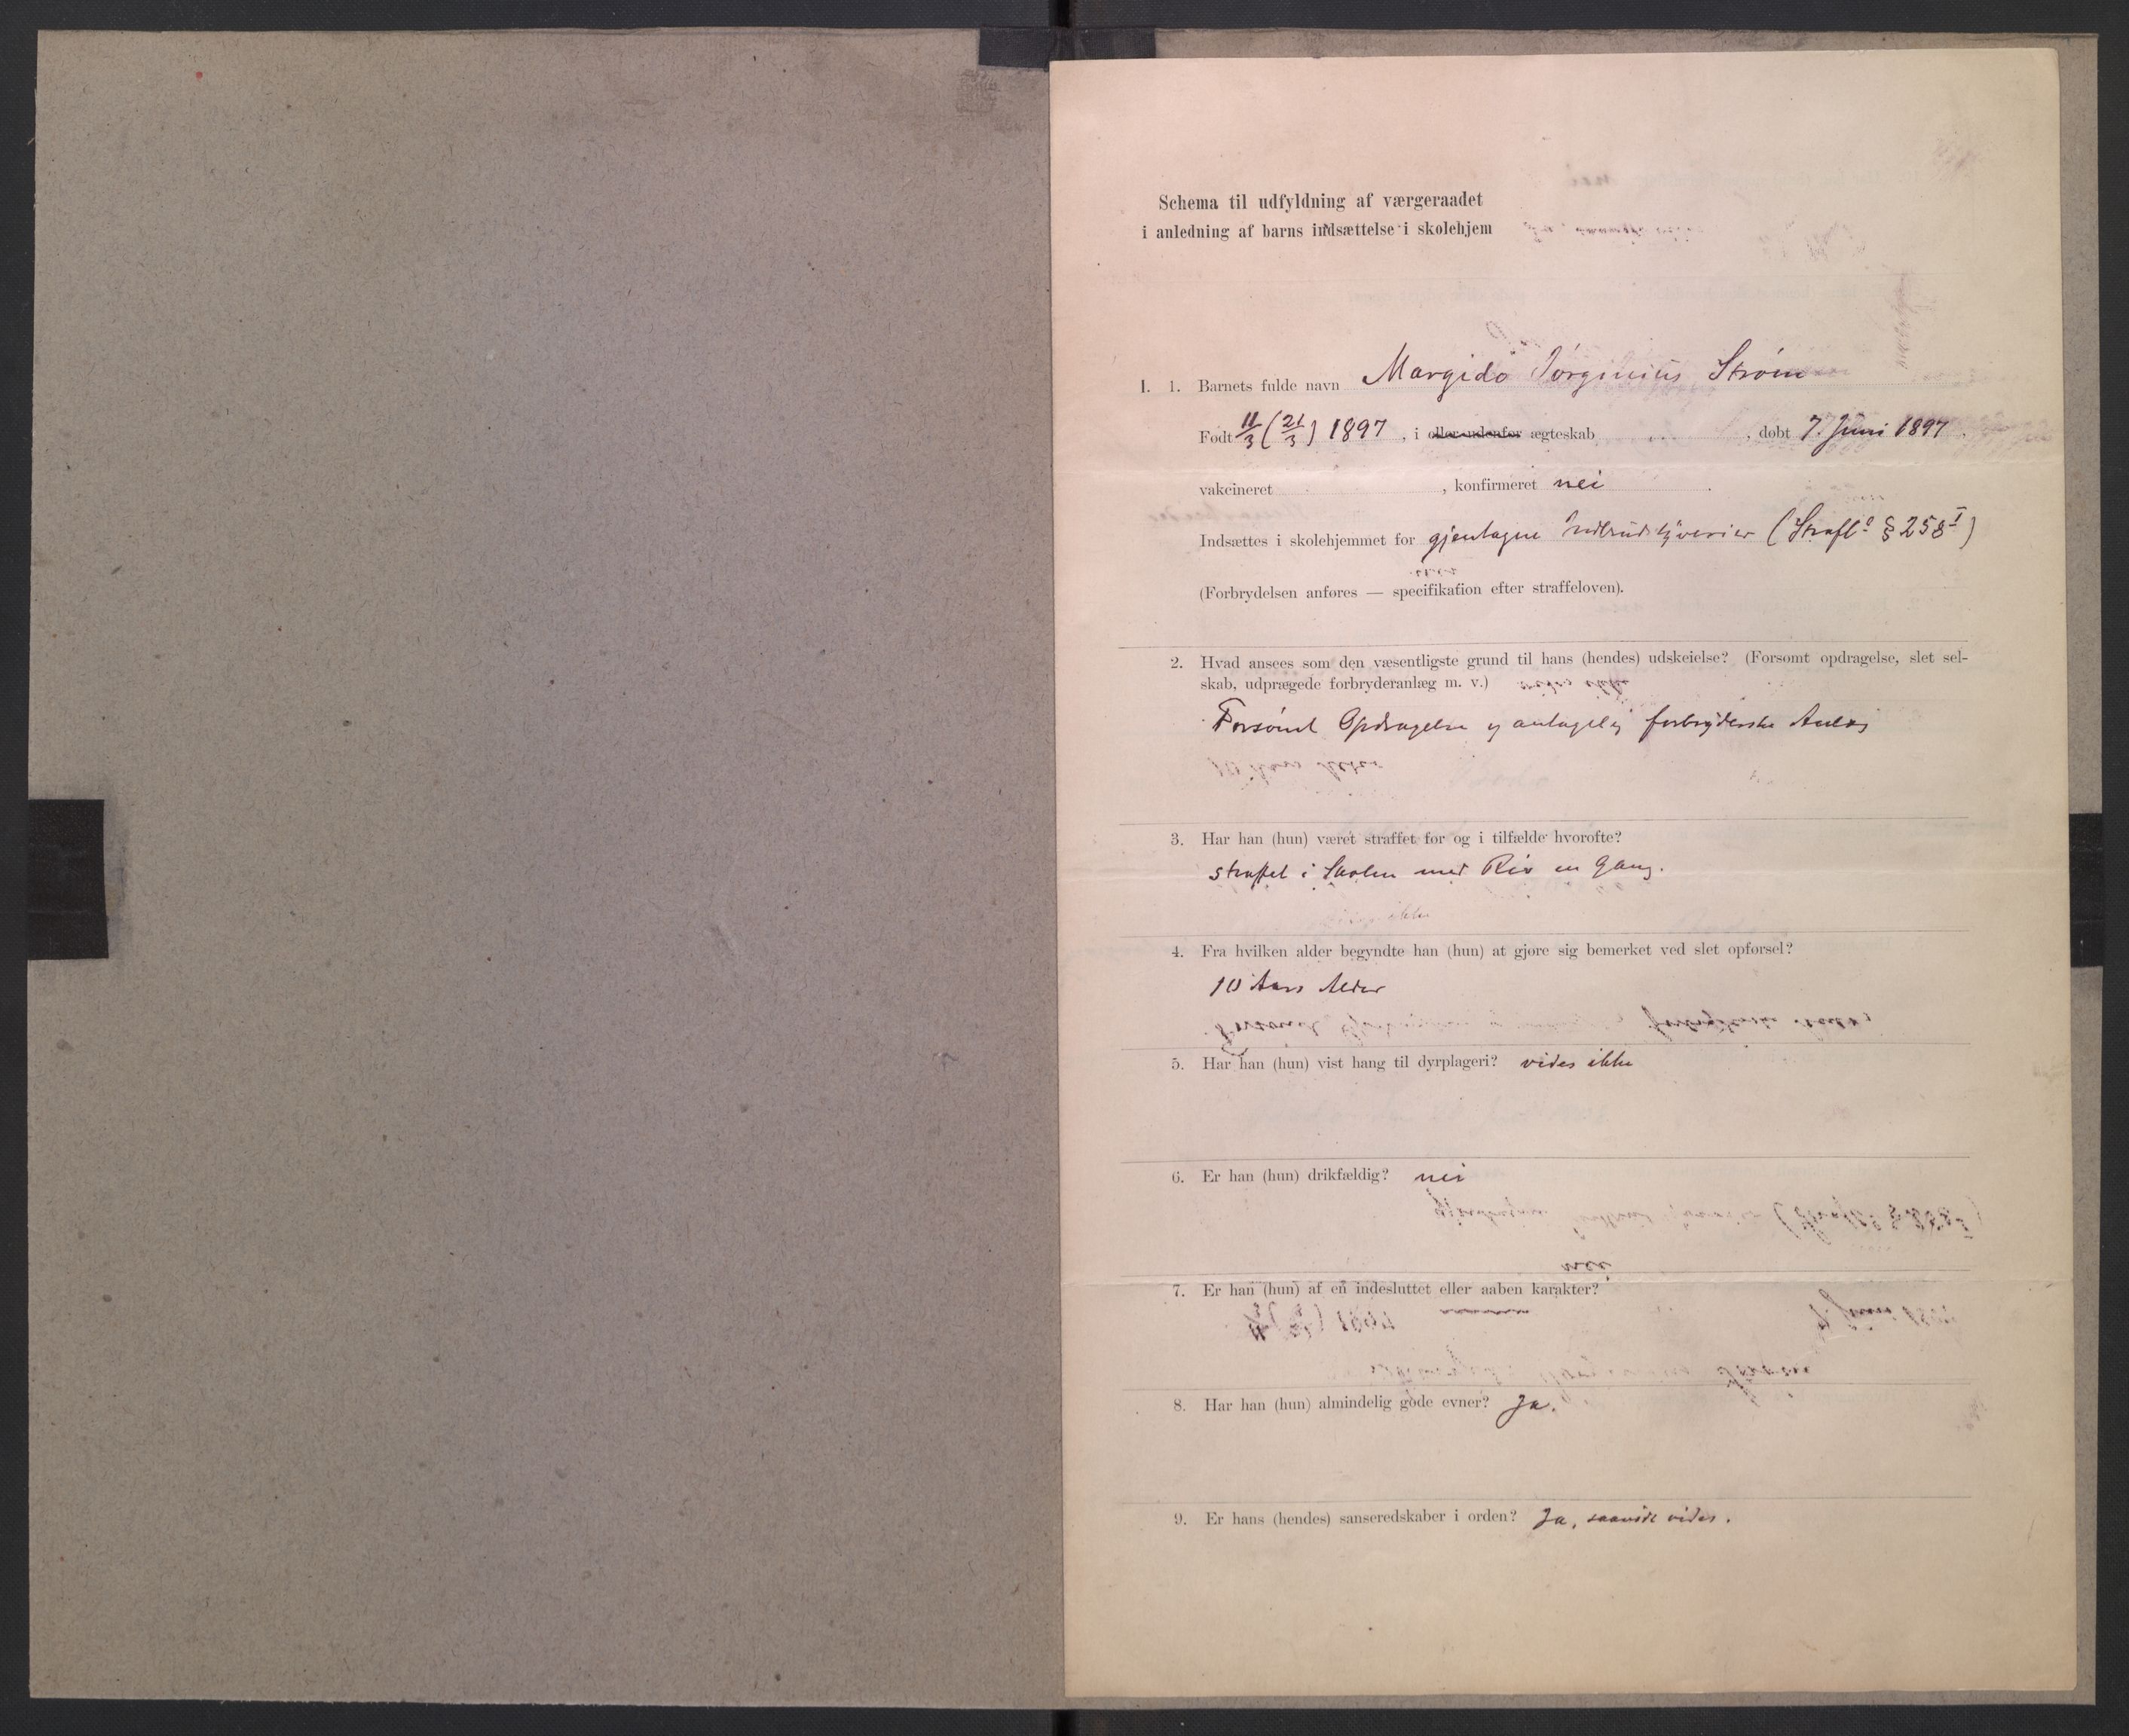 Schema til udfyldning af værgeraadet
i anledning af barns indsættelse i skolehjem
I. 1. Barnets fulde navn Margido Jørginius Strøm
Født 11/3 (21/3) 1897, i eller udenfor ægteskab , døbt 7. Juni 1897.
vakcineret , konfirmeret nei .
Indsættes i skolehjemmet for gjentagne Indbrudstyverier (Strafl. § 258 I)
(Forbrydelsen anføres — specifikation efter straffeloven).
2. Hvad ansees som den væsentligste grund til hans (hendes) udskeielse? (Forsømt opdragelse, slet sel-
skab, udprægede forbryderanlæg m. v.)
Forsømt Opdragelse og antagelig forbryderske Anlæg
3. Har han (hun) været straffet før og i tilfælde hvorofte?
straffet i Skolen med Ris en Gang.
4. Fra hvilken alder begyndte han (hun) at gjøre sig bemerket ved slet opførsel?
10 Aars Alder
5. Har han (hun) vist hang til dyrplageri? vides ikke
6. Er han (hun) drikfældig? nei
7. Er han (hun) af en indesluttet eller aaben karakter?
8. Har han (hun) almindelig gode evner? Ja.
9. Er hans (hendes) sanseredskaber i orden? Ja, saavidt vides.